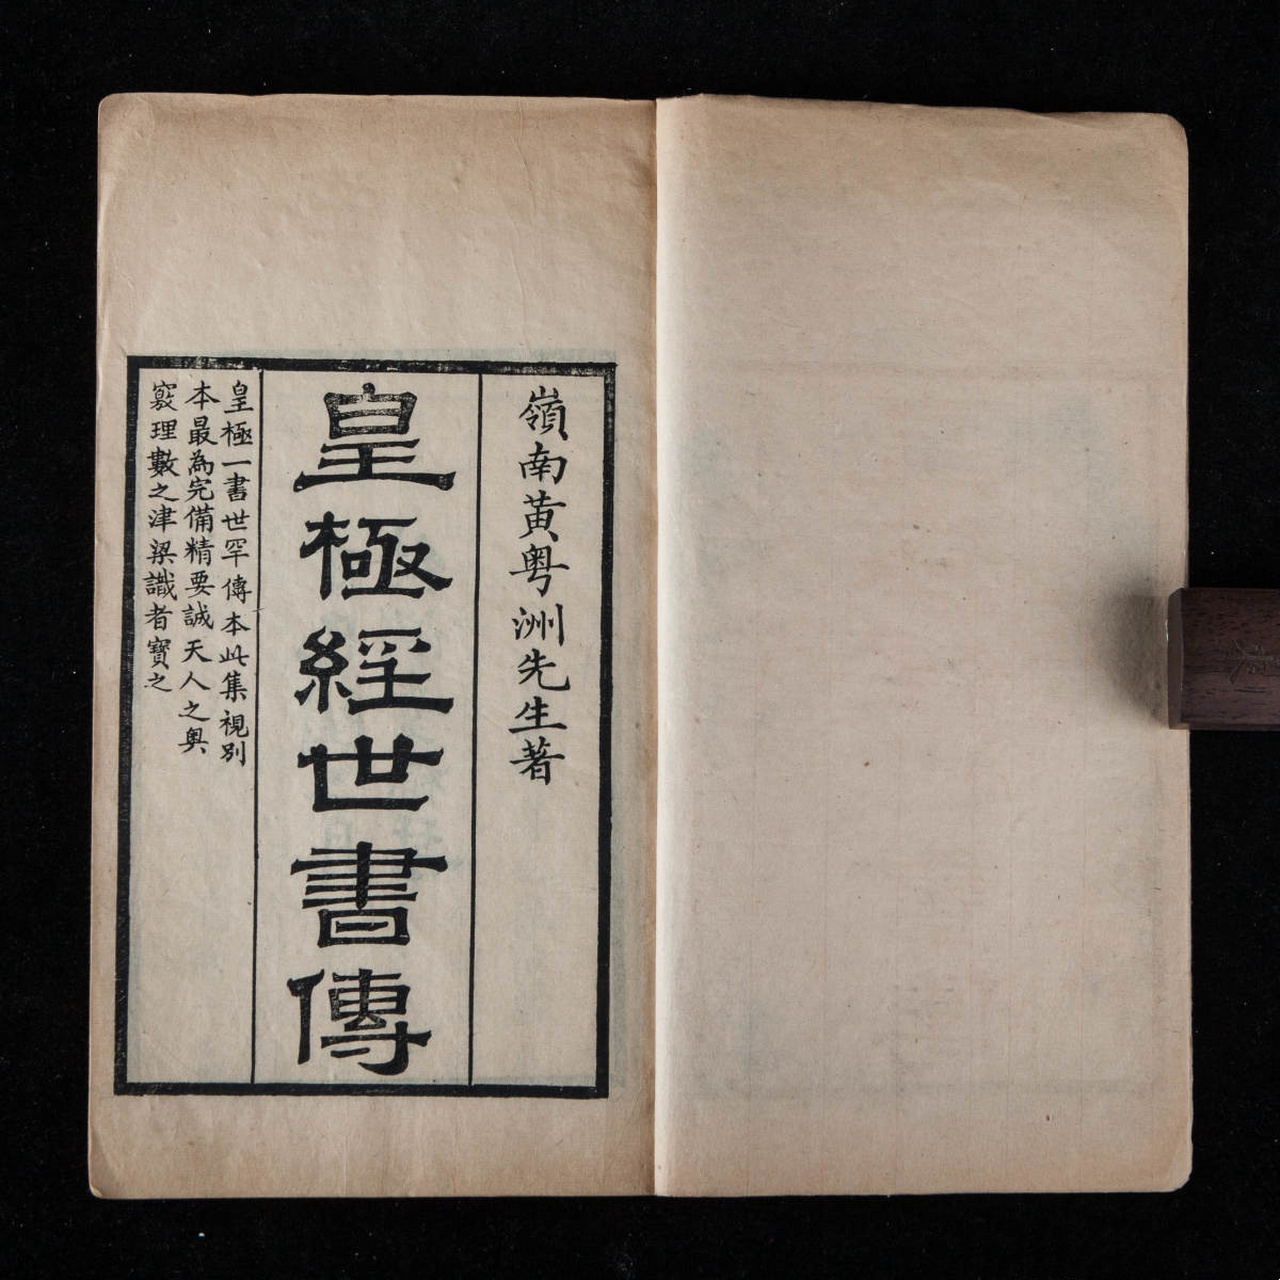 嶺南黃粤洲先生著
皇極經世書傳
皇極一書世罕傳本此集視別
本最為完備精要誠天人之奥
窽理數之津梁識者寶之